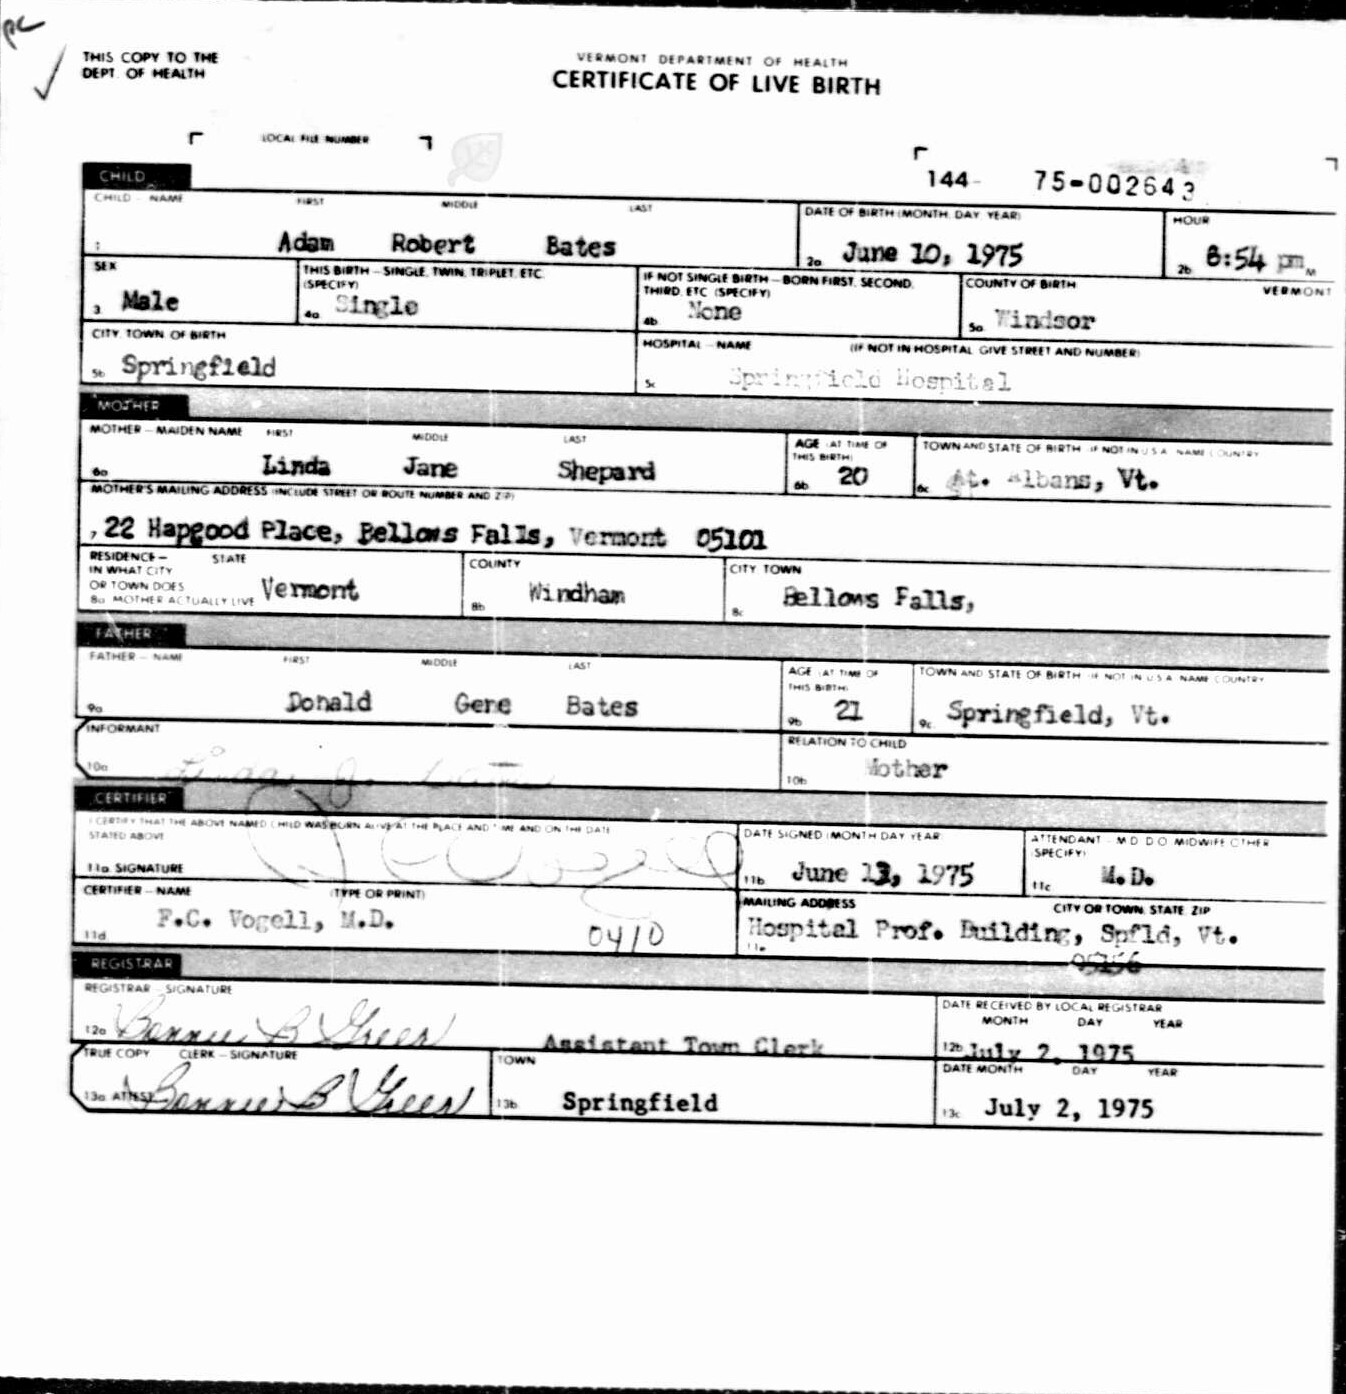 pc
THIS COPY TO THE
DEPT. OF HEALTH
VERMONT DEPARTMENT OF HEALTH
CERTIFICATE OF LIVE BIRTH
LOCAL FILE NUMBER
144- 75-002643
CHILD
CHILD - NAME FIRST MIDDLE LAST DATE OF BIRTH (MONTH, DAY, YEAR) HOUR
1 Adam Robert Bates 2a June 10, 1975 2b 8:54 pm M
SEX THIS BIRTH - SINGLE, TWIN, TRIPLET, ETC. IF NOT SINGLE BIRTH - BORN FIRST, SECOND, COUNTY OF BIRTH
(SPECIFY) THIRD, ETC (SPECIFY) VERMONT
3 Male 4a Single 4b None 5a Windsor
CITY, TOWN OF BIRTH HOSPITAL - NAME (IF NOT IN HOSPITAL, GIVE STREET AND NUMBER)
5b Springfield 5c Springfield Hospital
MOTHER
MOTHER - MAIDEN NAME FIRST MIDDLE LAST AGE (AT TIME OF TOWN AND STATE OF BIRTH (IF NOT IN U.S.A. NAME COUNTRY)
THIS BIRTH)
6a Linda Jane Shepard 6b 20 6c St. Albans, Vt.
MOTHER'S MAILING ADDRESS (INCLUDE STREET OR ROUTE NUMBER AND ZIP)
, 22 Hapgood Place, Bellows Falls, Vermont 05101
RESIDENCE - STATE COUNTY CITY TOWN
IN WHAT CITY
OR TOWN DOES
8a MOTHER ACTUALLY LIVE Vermont 8b Windham 8c Bellows Falls,
FATHER
FATHER - NAME FIRST MIDDLE LAST AGE (AT TIME OF TOWN AND STATE OF BIRTH (IF NOT IN U.S.A. NAME COUNTRY)
THIS BIRTH)
9a Donald Gene Bates 9b 21 9c Springfield, Vt.
INFORMANT RELATION TO CHILD
10a Linda J. 10b Mother
CERTIFIER
I CERTIFY THAT THE ABOVE NAMED CHILD WAS BORN ALIVE AT THE PLACE AND TIME AND ON THE DATE DATE SIGNED (MONTH DAY YEAR ATTENDANT - M.D. D.O. MIDWIFE OTHER
STATED ABOVE (SPECIFY)
11a SIGNATURE 11b June 13, 1975 11c M.D.
CERTIFIER - NAME (TYPE OR PRINT) MAILING ADDRESS CITY OR TOWN, STATE, ZIP
11d F.C. Vogell, M.D. 0410 11e Hospital Prof. Building, Spfld, Vt.
05156
REGISTRAR
REGISTRAR - SIGNATURE DATE RECEIVED BY LOCAL REGISTRAR
MONTH DAY YEAR
12a Bonnie B Green Assistant Town Clerk 12b July 2, 1975
TRUE COPY CLERK - SIGNATURE TOWN DATE MONTH DAY YEAR
13a ATTEST Bonnie B Green 13b Springfield 13c July 2, 1975